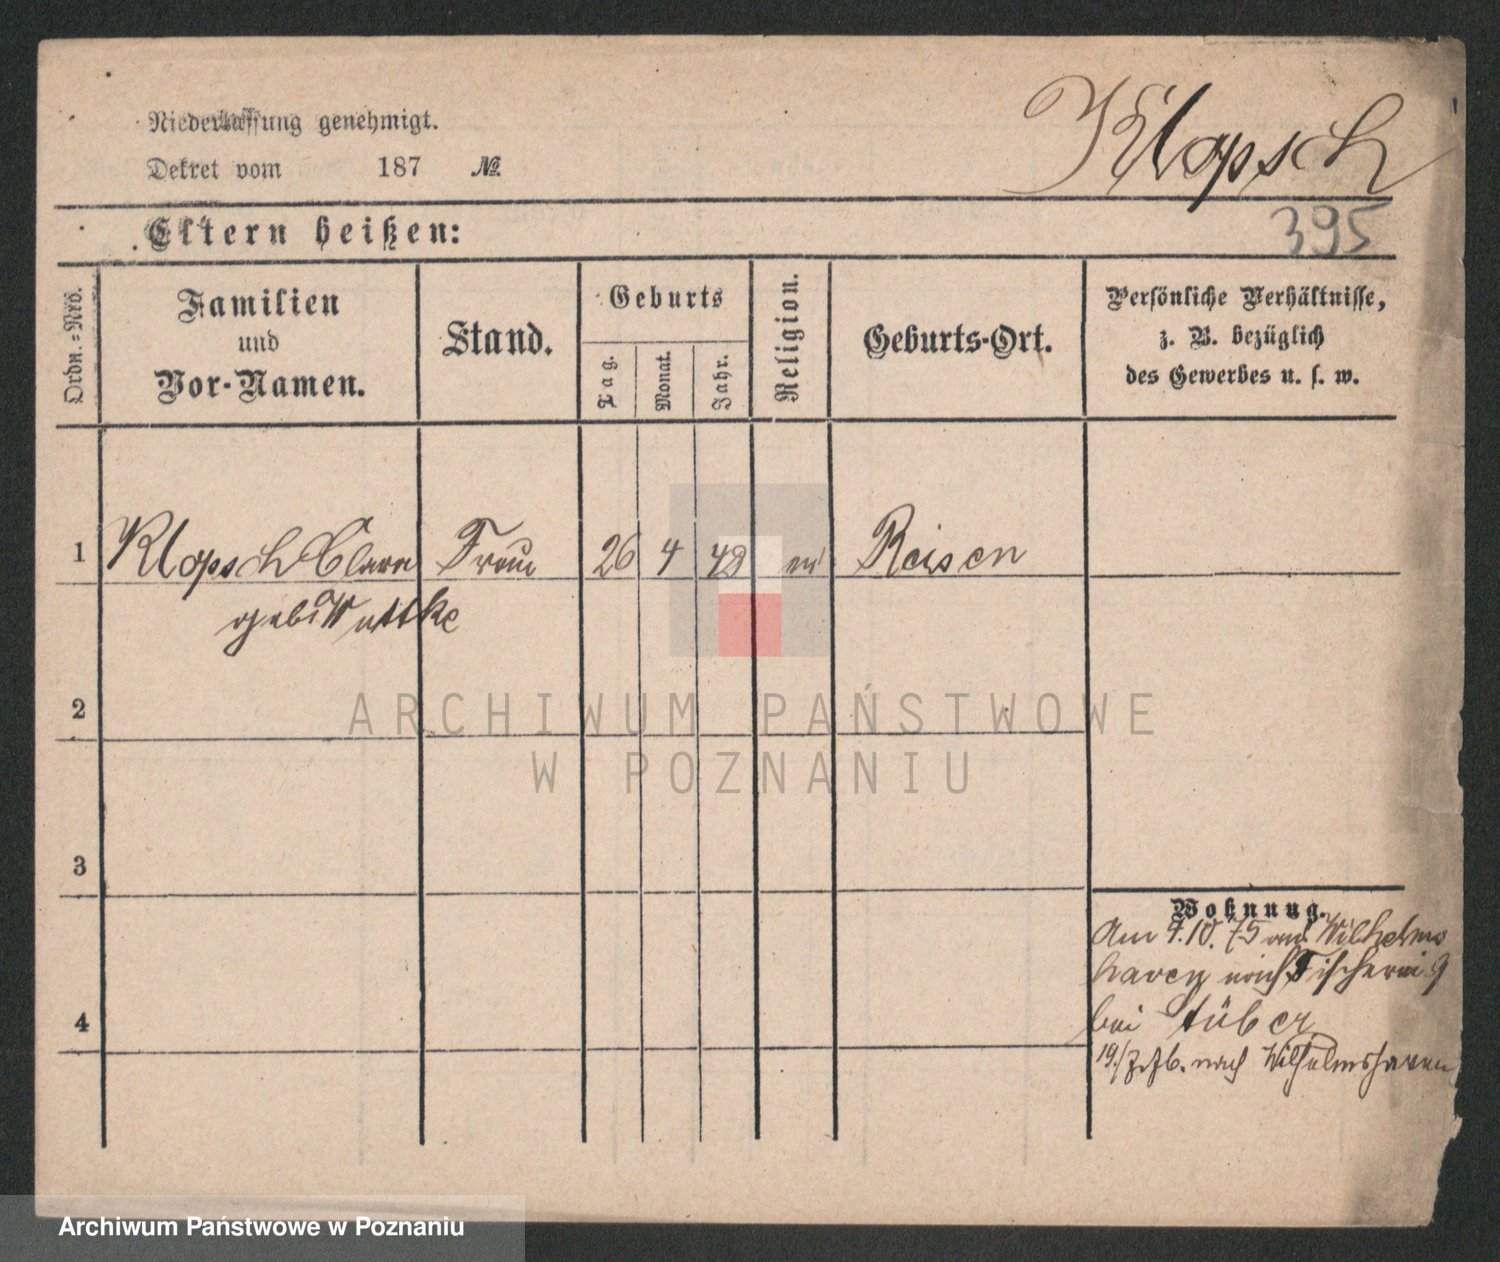 Niederlassung genehmigt.
Dekret vom 187 №
Klopsch
Eltern heißen:
395
Ordn.=Nro.
Familien
und
Vor-Namen.
Stand.
Geburts
Tag.
Monat.
Jahr.
Religion.
Geburts-Ort.
Persönliche Verhältnisse,
z. B. bezüglich
des Gewerbes u. s. w.
1 Klopsch Clara Frau 26 4 48 ev Reisen
geb. Wuttke
2
3
4
Wohnung.
Am 4.10.75 aus Wilhelms
haven nach Fischerei 9
bei Stüber
19/ nach Wilhelmshaven
ARCHIWUM PAŃSTWOWE
W POZNANIU
Archiwum Państwowe w Poznaniu